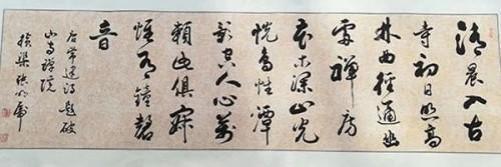 清晨入古
寺初日照高
林曲徑通幽
處禪房
花木深山光
悦鳥性潭
影空人心萬
籟此俱寂
惟聞鐘磬
音
常建詩題破
山寺禪院